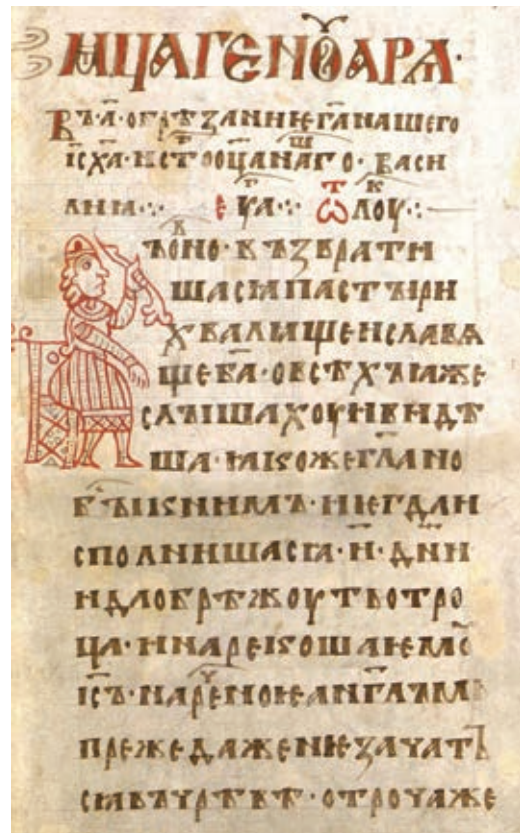 МЦА ГЕНОАРѦ·
Въ·а҃· огрѣзаниꙗ г҃а нашего
і҃с х҃а· и ст҃о оц҃а наго· васи
лиꙗ ⁘ еѵ҃а ⁘ ѿ лоу⁘
Въ оно· възврати
шасѧ пастꙑри
хвалище и славѧ
ще б҃а· о всѣхъ ꙗже
слꙑшахоу и видѣ
ша· ꙗкоже гл҃ано
бꙑ къ нимъ· и ѥгда и
сполнишасѧ· и҃· дн҃и
и да обрѣжоуть отро
ча· и нарекоша ѥмоу
і҃съ· нареноѥ анг҃лъмь
преже даже не зачатъ
сѧ въ чрѣвѣ· отроча же